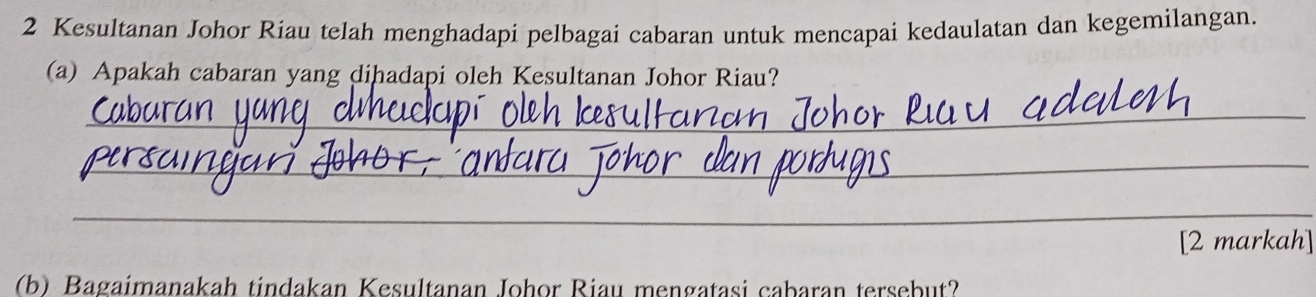 2 Kesultanan Johor Riau telah menghadapi pelbagai cabaran untuk mencapai kedaulatan dan kegemilangan.
(a) Apakah cabaran yang dihadapi oleh Kesultanan Johor Riau?
Cabaran yang dihadapi oleh kesultanan Johor Riau adalah
persaingan Johor, antara Johor dan portugis
[2 markah]
(b) Bagaimanakah tindakan Kesultanan Johor Riau mengatasi cabaran tersebut?